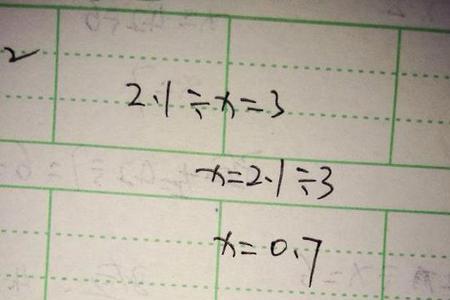 2.1÷x=3
x=2.1÷3
x=0.7